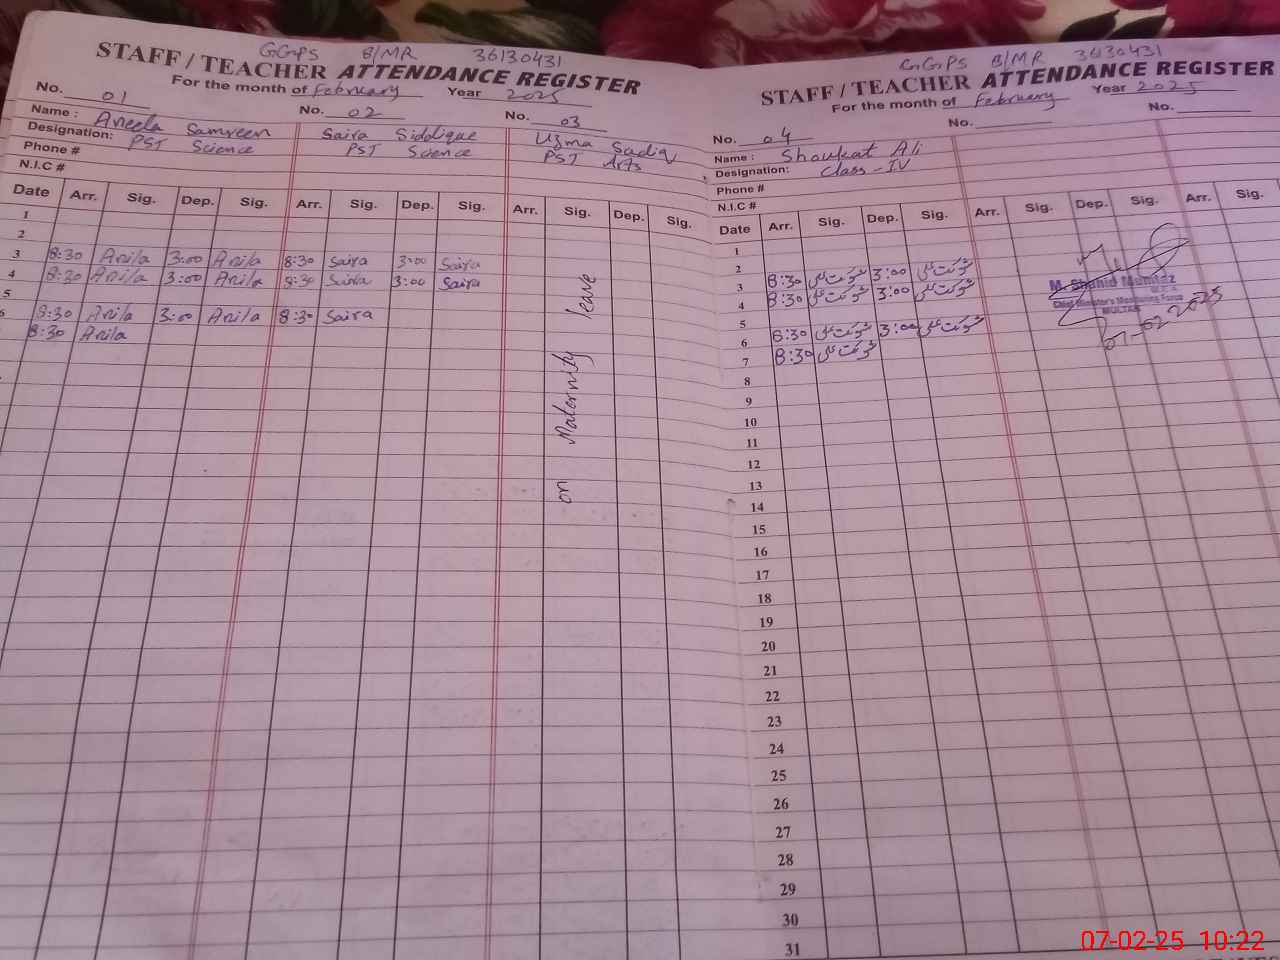 GGPS B/MR 36130431
STAFF / TEACHER ATTENDANCE REGISTER
For the month of February Year 2025
No. 01 No. 02 No. 03
Name : Aneela Samreen Saira Siddique Uzma Sadiq
Designation: PST Science PST Science PST Arts
Phone #
N.I.C #
Date Arr. Sig. Dep. Sig. Arr. Sig. Dep. Sig. Arr. Sig. Dep. Sig.
1
2
3 8:30 Anila 3:00 Anila 8:30 Saira 3:00 Saira
4 8:30 Anila 3:00 Anila 8:30 Saira 3:00 Saira
5
6 8:30 Anila 3:00 Anila 8:30 Saira
8:30 Anila
on Maternity leave
GGPS B/MR 36130431
STAFF / TEACHER ATTENDANCE REGISTER
For the month of February Year 2025
No. 04 No. No.
Name : Shoukat Ali
Designation: Class-IV
Phone #
N.I.C #
Date Arr. Sig. Dep. Sig. Arr. Sig. Dep. Sig. Arr. Sig.
1
2
3 8:30 شوکت علی 3:00 شوکت علی
4 8:30 شوکت علی 3:00 شوکت علی
5
6 8:30 شوکت علی 3:00 شوکت علی
7 8:30 شوکت علی
8
9
10
11
12
13
14
15
16
17
18
19
20
21
22
23
24
25
26
27
28
29
30
31
M. Shahid Mumtaz
Chief Minister's Monitoring Force
MULTAN
07-02-2025
07-02-25 10:22